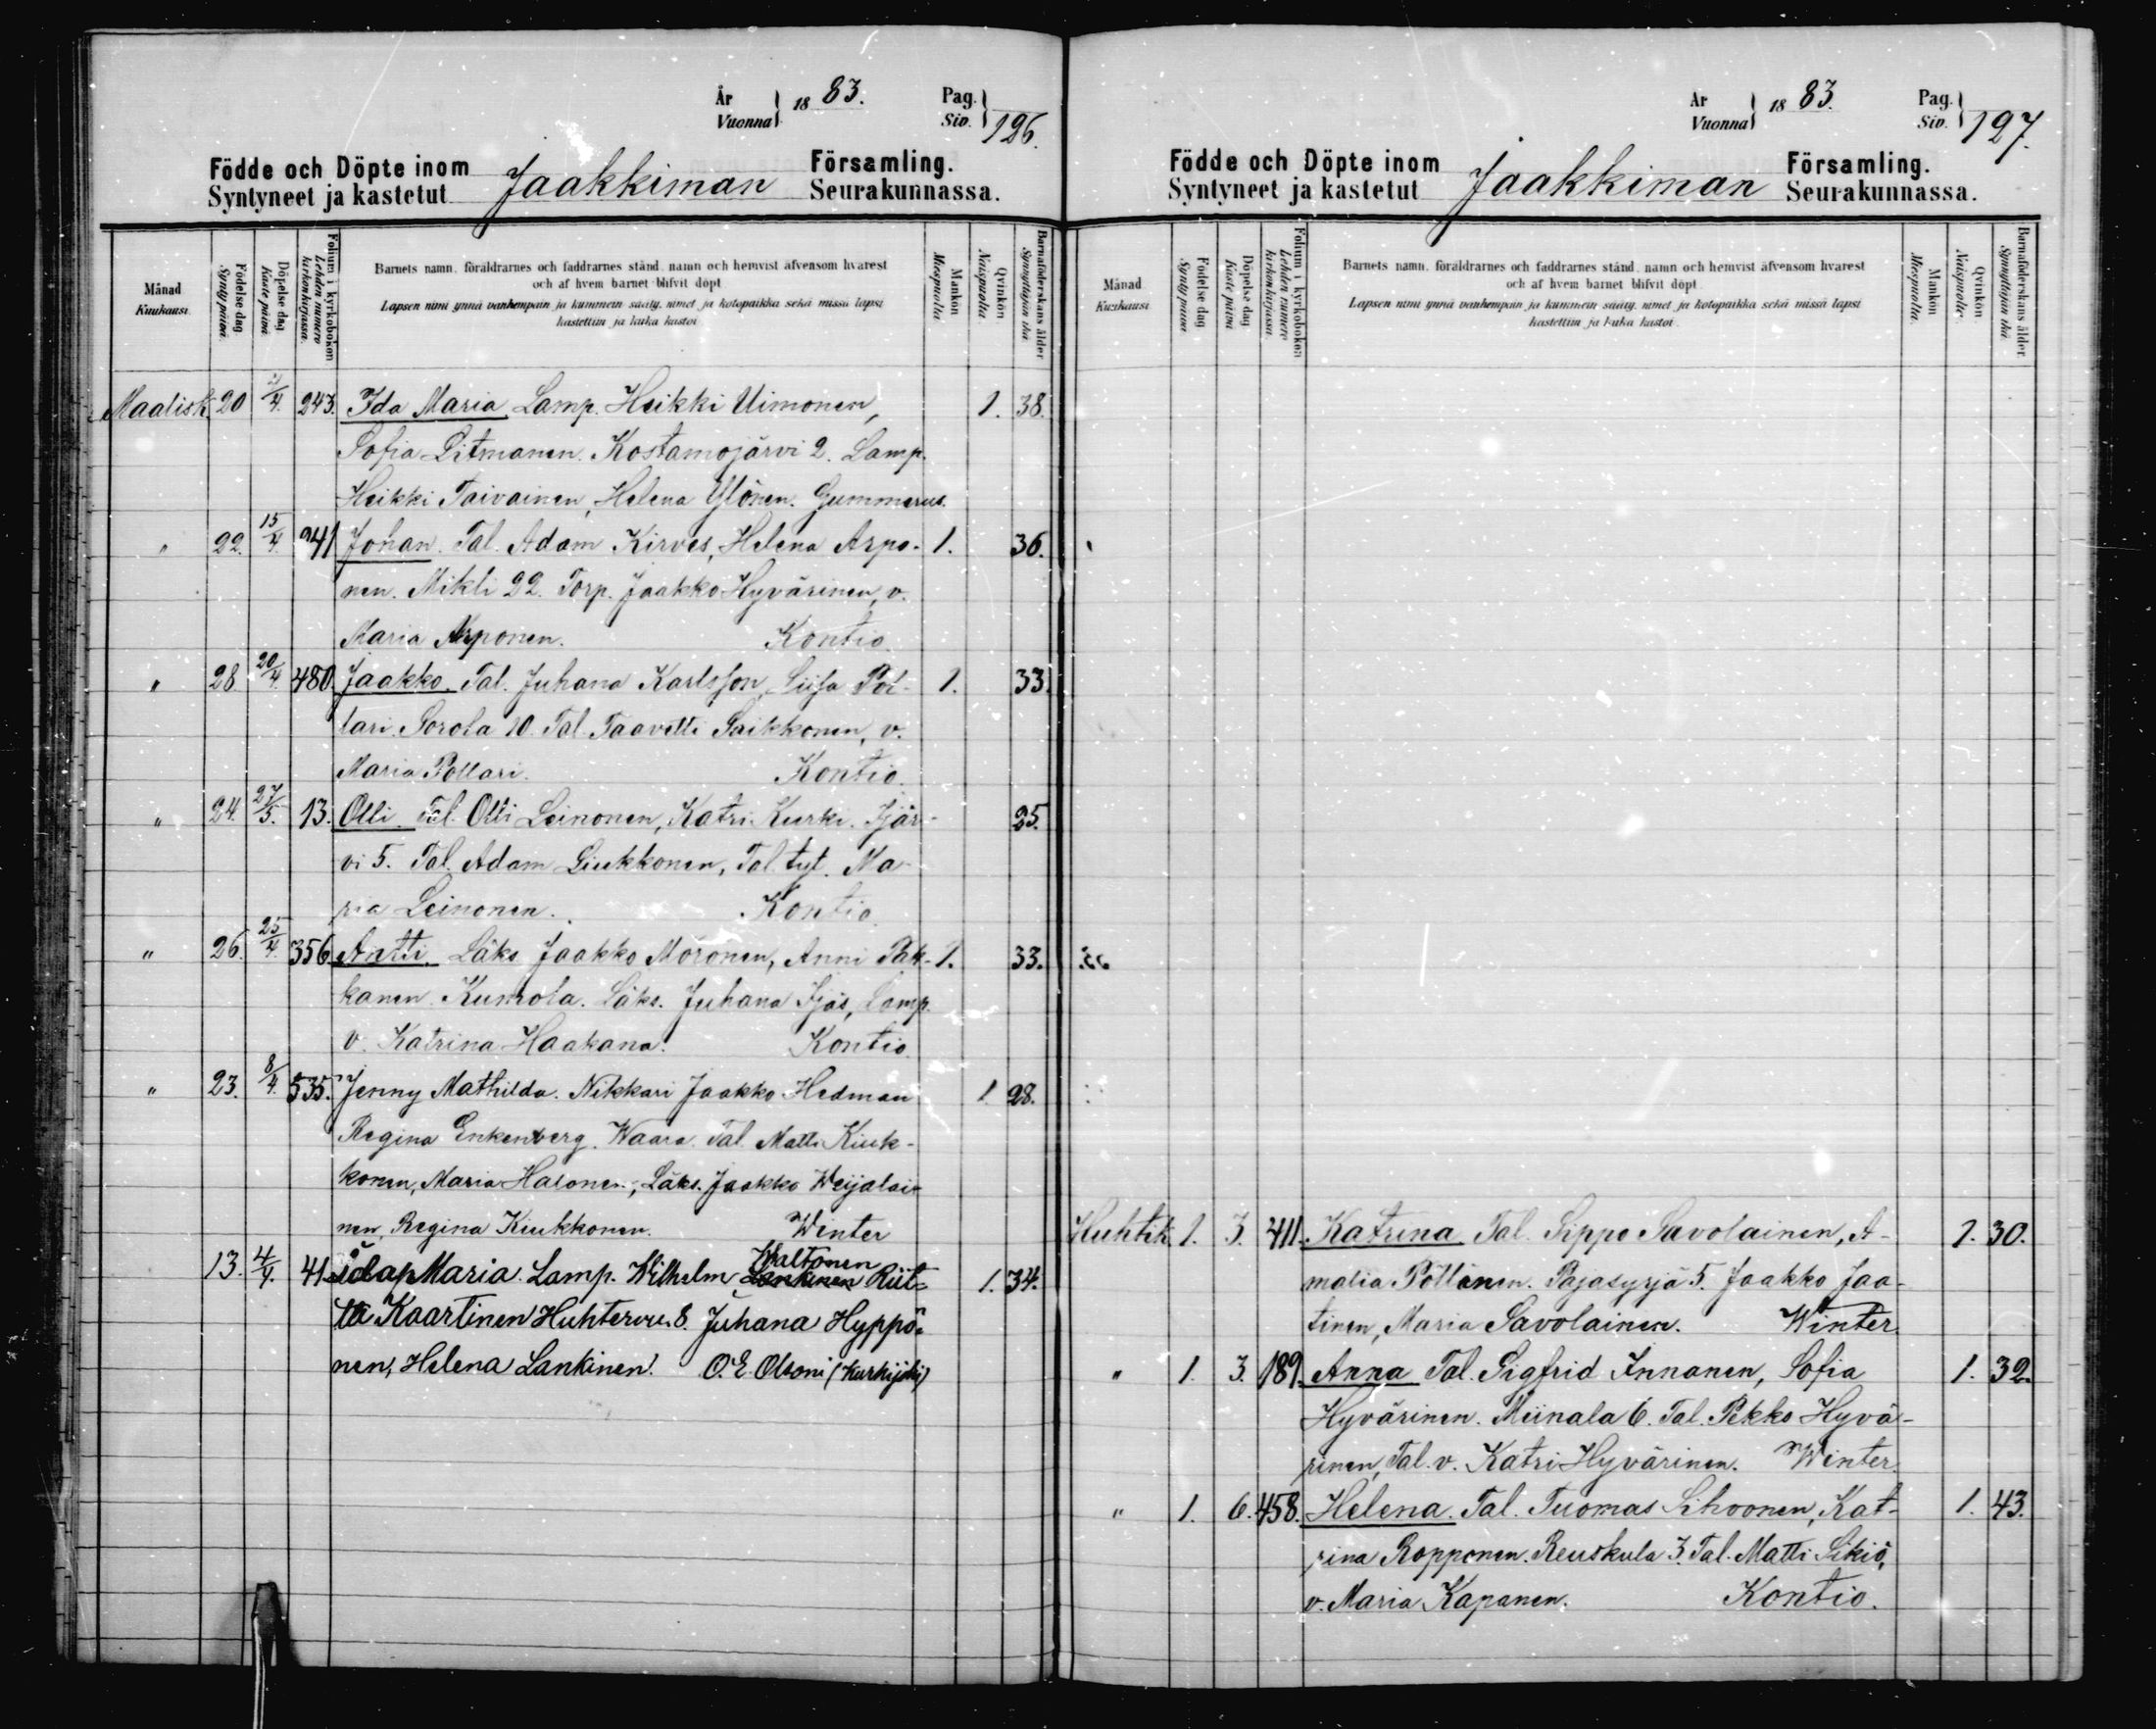 År Vuonna 1883.
Pag. Siv. 196.
Födde och Döpte inom Jaakkiman Församling.
Syntyneet ja kastetut Seurakunnassa.
Månad Kuukausi.
Födelse dag Synty päivä.
Döpelse dag Kaste päivä
Folium i kyrkobokon Lehden numero kirkonkirjassa.
Barnets namn, föräldrarnes och faddrarnes stånd, namn och hemvist äfvensom hvarest
och af hvem barnet blifvit döpt
Lapsen nimi ynnä vanhempain ja kummein sääty, nimet ja kotopaikka sekä missä lapsi
kastettiin ja kuka kastoi
Mankön Miespuolia.
Qvinkön. Naispuolia.
Barnaföderskans ålder Synnyttäjän ikä
Maalisk. 20 2/4. 243. Ida Maria Lamp. Heikki Uimonen, 1. 38.
Sofia Litmanen. Kostamojärvi 2. Lamp.
Heikki Taivainen, Helena Ylönen. Gummerus.
" 22. 15/4. 241 Johan. Tal. Adam Kirves, Helena Arpo- 1. 36.
nen. Mikli 22. Torp. Jaakko Hyvärinen, v.
Maria Arponen. Kontio.
" 28. 20/4. 480. Jaakko. Tal. Juhana Karlsson, Liisa Pöl- 1. 33.
lari. Sorola 10. Tal. Taavetti Saikkonen, v.
Maria Pöllari. Kontio.
" 24. 27/5. 13. Olli. Tal. Olli Leinonen, Katri Kurki. Ijär- 25.
vi 5. Tal. Adam Liukkonen, Tal. tyt. Ma-
ria Leinonen. Kontio
" 26. 25/4. 356. Antti. Läks. Jaakko Moronen, Anni Pak- 1. 33.
kanen. Kumola. Läks. Juhana Ijäs, Lamp.
v. Katrina Haakana. Kontio
" 23. 8/4. 535. Jenny Mathilda. Nikkari Jaakko Hedman 1 28.
Regina Enkenberg. Waara. Tal. Matti Kiuk-
konen, Maria Halonen, Läks. Jaakko Weijalai-
nen, Regina Kiukkonen. Winter
Waltonen
13. 4/4. 41. Ida Maria. Lamp. Wilhelm Lankinen Riit- 1. 34.
ta Kaartinen Huhtervu 8. Juhana Hyppö-
nen, Helena Lankinen. O. E. Olsoni (Kurkijoki)
År Vuonna 1883.
Pag. Siv. 197.
Födde och Döpte inom Jaakkiman Församling.
Syntyneet ja kastetut Seurakunnassa.
Månad Kuukausi.
Födelse dag Synty päivä.
Döpelse dag Kaste päivä
Folium i kyrkobokon Lehden numero kirkonkirjassa.
Barnets namn, föräldrarnes och faddrarnes stånd, namn och hemvist äfvensom hvarest
och af hvem barnet blifvit döpt.
Lapsen nimi ynnä vanhempain ja kummein sääty, nimet ja kotopaikka sekä missä lapsi
kastettiin ja kuka kastoi.
Mankön Miespuolia.
Qvinkön Naispuolia.
Barnaföderskans ålder. Synnyttäjän ikä
Huhtik. 1. 3. 411. Katrina Tal. Sippo Savolainen, A- 1. 30.
malia Pöllänen. Pajasyrjä 5. Jaakko Jaa-
tinen, Maria Savolainen. Winter.
" 1. 3. 189. Anna Tal. Sigfrid Innanen, Sofia 1. 32.
Hyvärinen. Miinala 6. Tal. Pekko Hyvä-
rinen, Tal. v. Katri Hyvärinen. Winter.
" 1. 6. 458. Helena. Tal. Tuomas Sihvonen, Kat- 1. 43.
rina Ropponen. Reuskula 3. Tal. Matti Sikiö,
v. Maria Kapanen. Kontio.